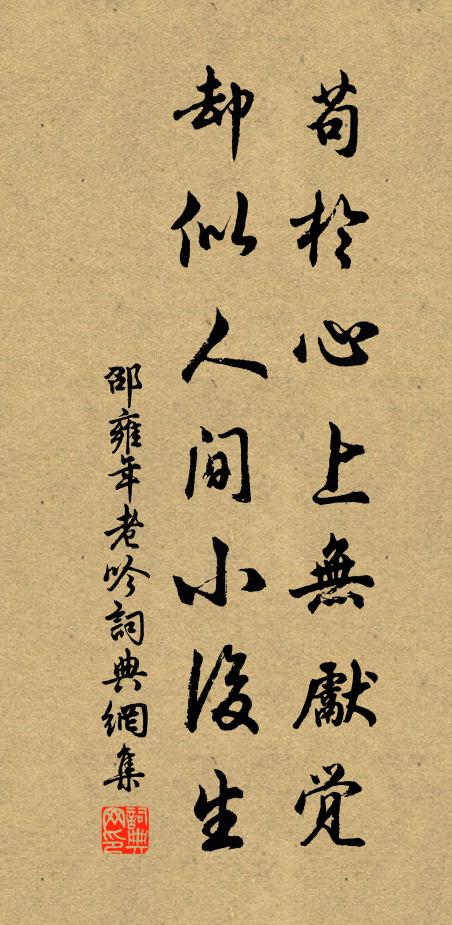 苟於心上無獻覺
却似人间小後生
邵雍年老吟詞典網集
詞典网印